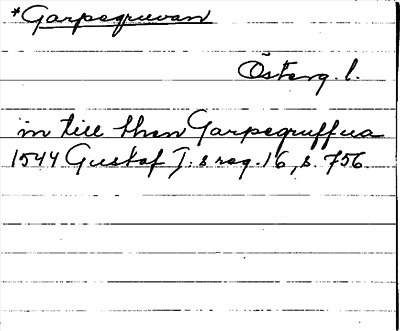 *Garpegruvan
Österg. l.
in till then Garpegruffua
1544 Gustaf I:s reg. 16, s. 756.